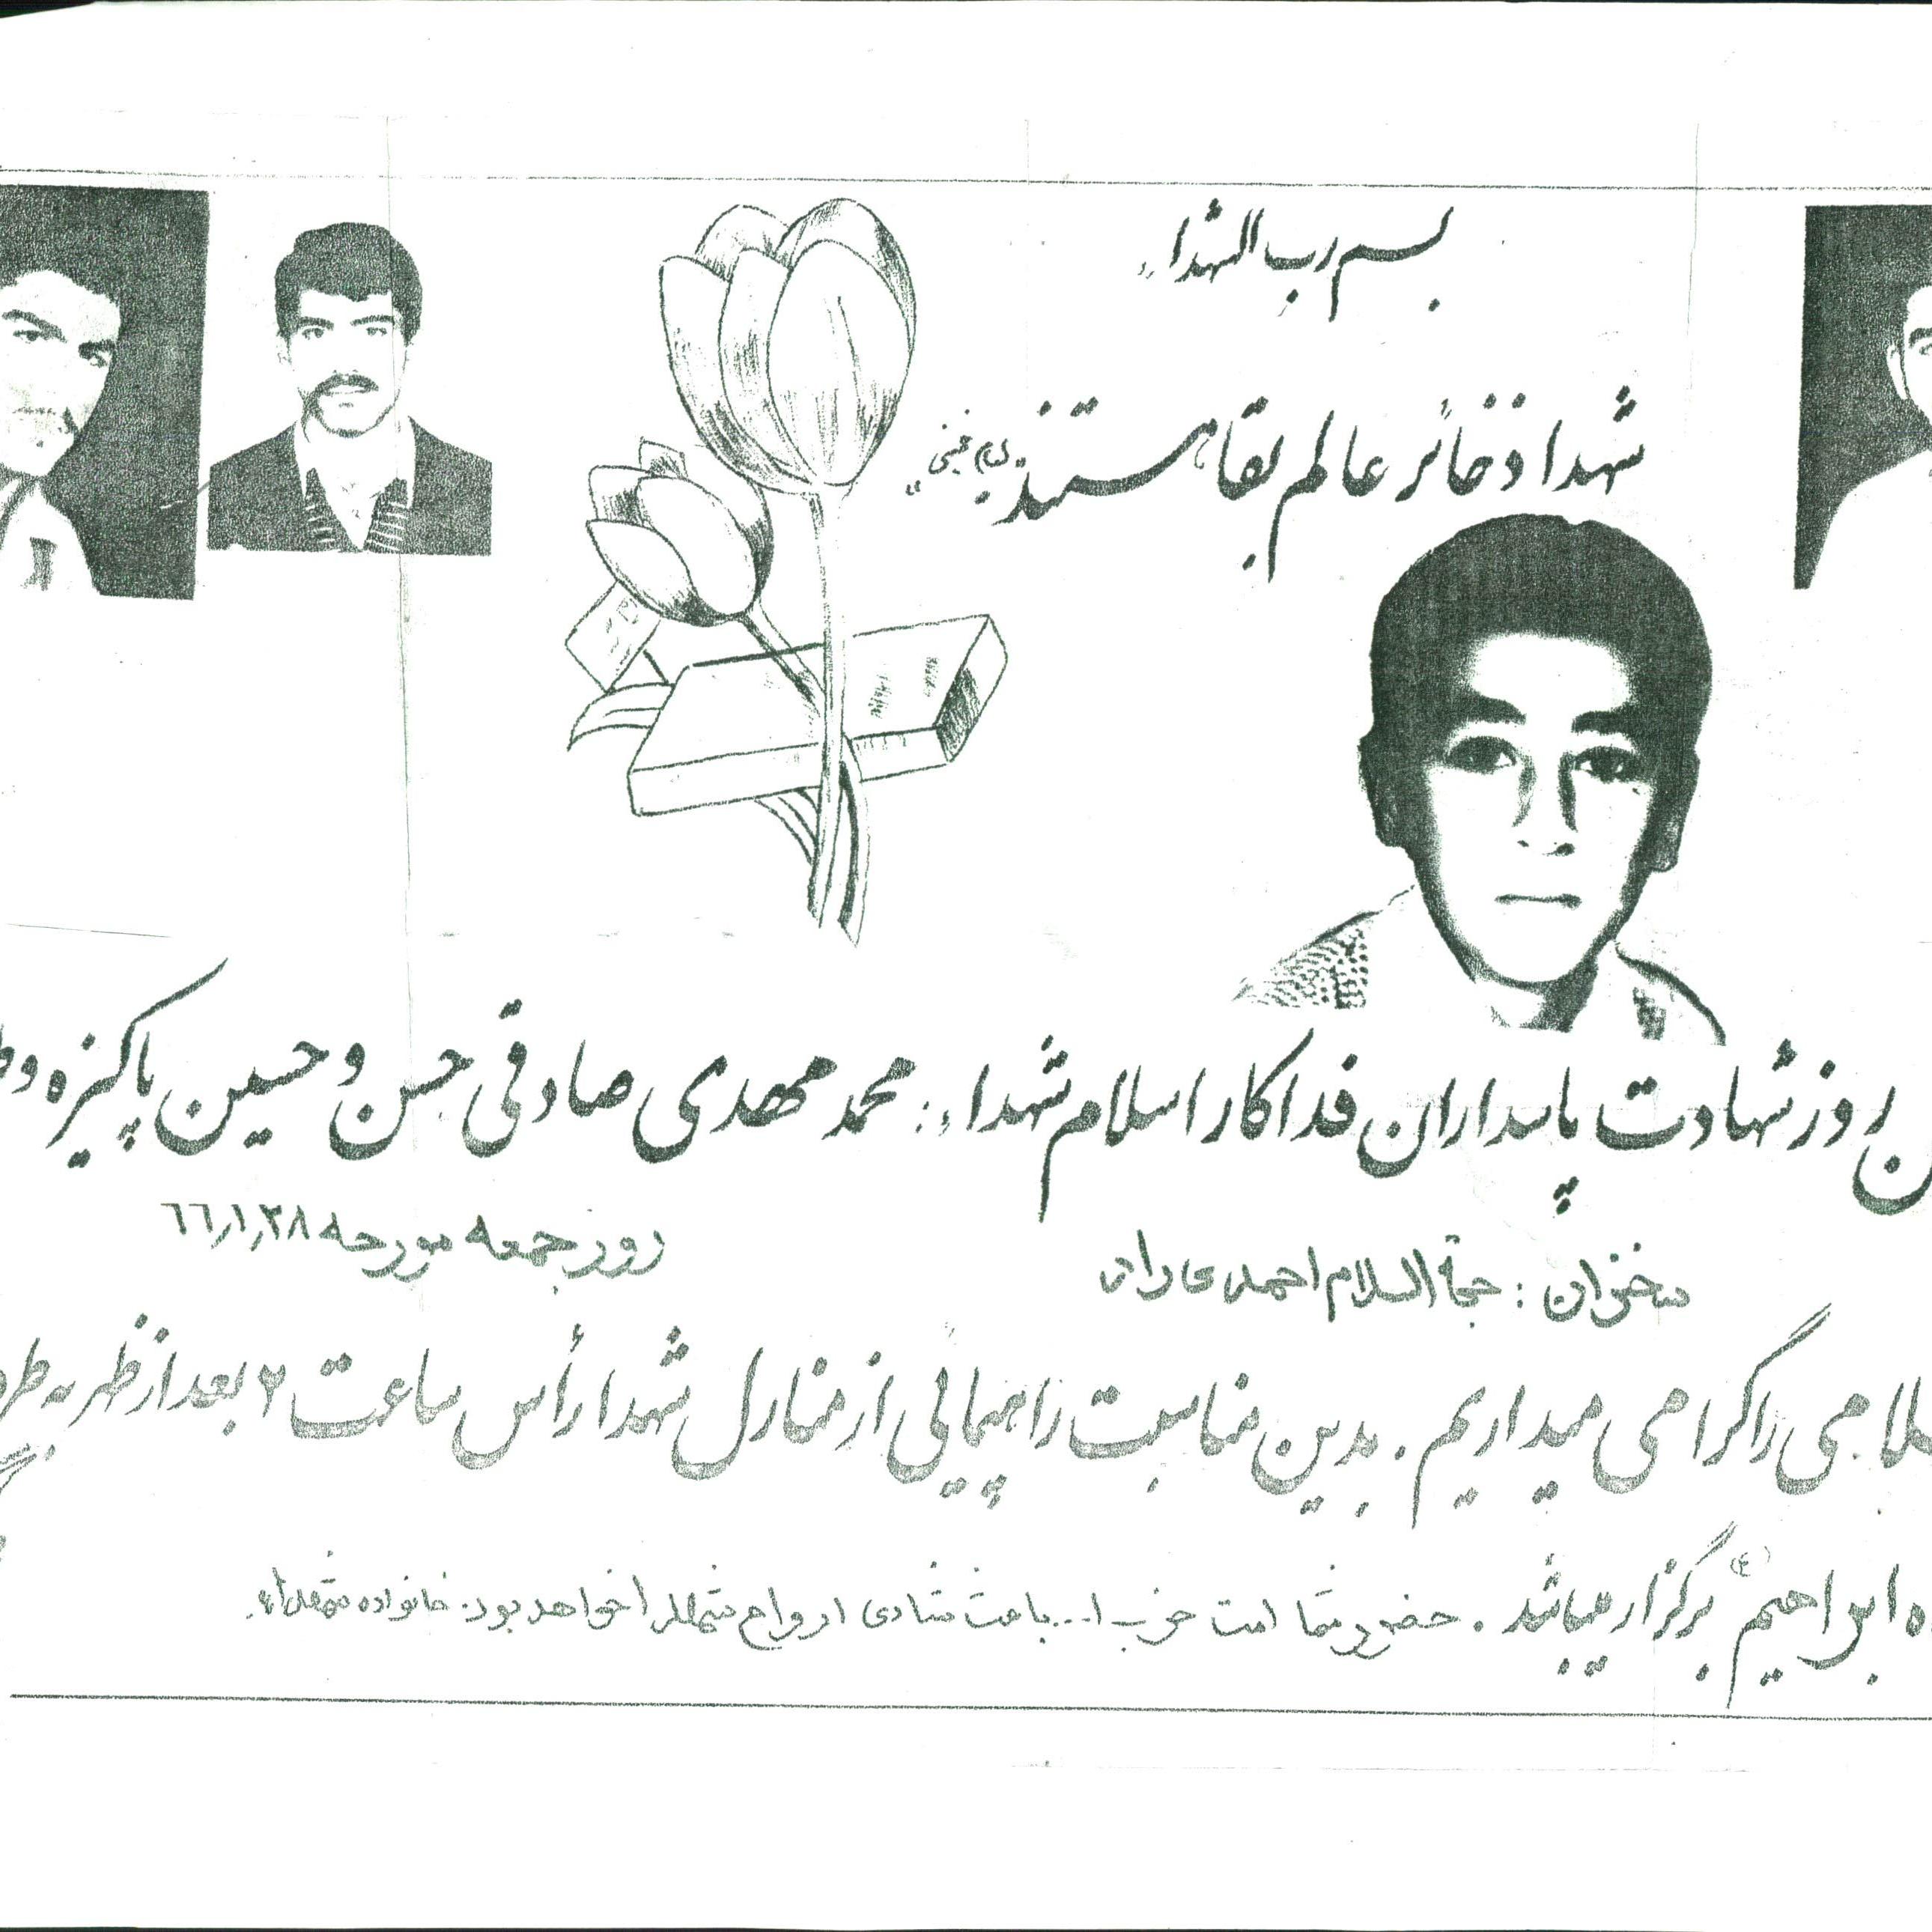 بسم رب الشهداء
شهدا ذخائر عالم بقا هستند "امام خمینی"
روز شهادت پاسداران فداکار اسلام شهداء: محمد مهدی صادقی حسن و حسین پاکیزه و
سخنران: حجة السلام احمدی
روز جمعه مورحه ۶۶٫۱٫۲۸
را گرامی میداریم. بدین مناسبت راهپیمائی از منازل شهدا رأس ساعت ۲ بعد از ظهر به
ابراهیم (ع) برگزار میباشد. حضور شما امت حزب ا... باعث شادی ارواح شهدا خواهد بود. خانواده شهداء.